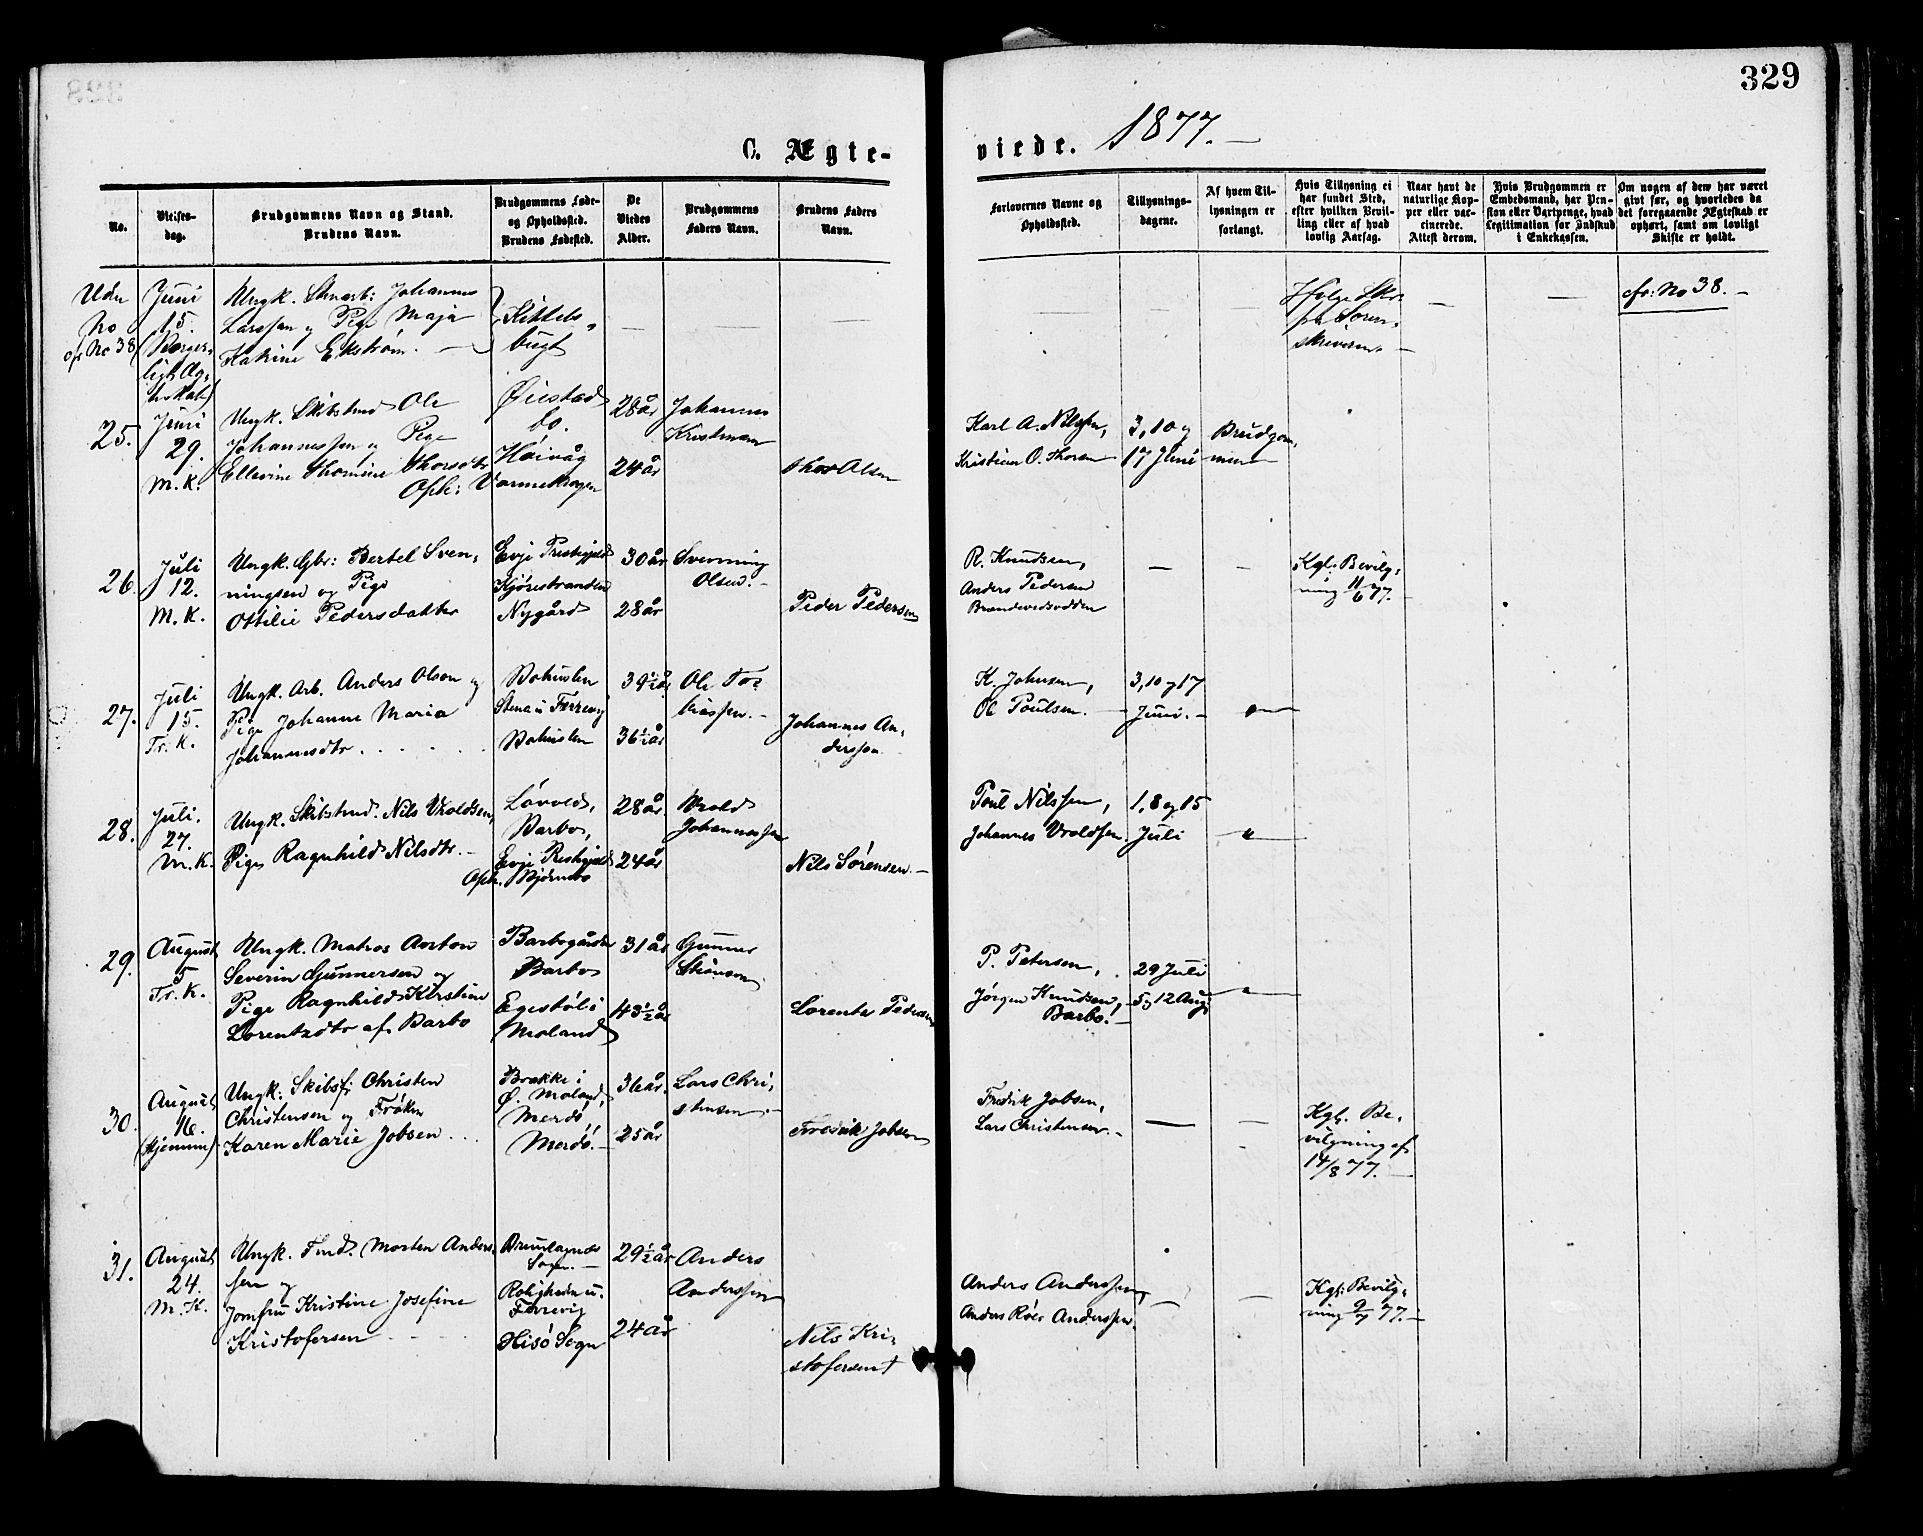 329
C. Ægte-
viede. 1877. —
No.
Vielses-
dag.
Brudgommens Navn og Stand.
Brudens Navn.
Brudgommens Føde-
og Opholdssted.
Brudens Fødested.
De
Viedes
Alder.
Brudgommens
Faders Navn.
Brudens Faders
Navn.
Forlovernes Navne og
Opholdssted.
Tillysnings-
dagene.
Af hvem Til-
lysningen er
forlangt.
Hvis Tillysning ei
har fundet Sted,
efter hvilken Bevil-
ling eller af hvad
lovlig Aarsag.
Naar havt de
naturlige Kop-
per eller vac-
cinerede.
Attest derom.
Hvis Brudgommen er
Embedsmand, har Pen-
sion eller Vartpenge, hvad
Legitimation for Indskud
i Enkekassen.
Om nogen af dem har været
gift før, og hvorledes da
det foregaaende Ægteskab er
ophørt, samt om lovligt
Skifte er holdt.
Uden
No
cfr No 38
Juni
15.
(Borger-
ligt Æg-
teskab)
Ungk. Johannes
Larssen og Pige Maja
Katrine Ekstrøm. —
Kittels-
bugt
Ifølge
fra Soren-
skriveren. —
cfr. No 38. —
25.
Juni
29.
M. K.
Ungk. Skibstmd Ole
Johannessen og Pige
Ellevine Thomine Thorsdtr
Oph: Varmekrogen
Øiestad
bo.
Høivåg
28 år
24 år
Johannes
Kristensen
Thor Olsen
Karl A. Nilssen,
Kristian O. Thorsen
3, 10 og
17 Juni
Brudgom-
men
26.
Juli
12.
M. K.
Ungk. Gbr: Bertel Sven-
ningsen og Pige
Ottilie Pedersdatter
Evje Prestegjeld
Kjørestranden
Nygård
30 år
28 år
Svenning
Olsen. —
Peder Pedersen
R. Knudsen,
Anders Pedersen
Brændevedsodden
Kgl. Bevilg-
ning 11/6 77.
27.
Juli
15.
Tr. K.
Ungk. Arb. Anders Olson og
Pige Johanne Maria
Johannesdtr . . . . . .
Bohuslen
Stena i Færrevig
Bohuslen
39½ år
36½ år
Ole To-
biassen. —
Johannes An-
dersson
K. Johnsen,
Ol Poulsen. —
3, 10 og 17
Juni. —
28.
Juli.
27.
M. K.
Ungk. Skibstmd. Nils Vroldsen,
Pige Ragnhild Nilsdtr. —
Oph. Bjørnebo
Løvold,
Barbo,
Evje Prestgjeld
28 år.
24 år
Vrold
Johannessen
Nils Sørensen. —
Poul Nilssen,
Johannes Vroldsen
1, 8 og 15
Juli
29.
August
5
Tr. K.
Ungk. Matros Anton
Severin Gunnersen og
Pige Ragnhild Kirstine
Lorentzdtr af Barbo
Barbogården
Barbo
Egestøl i
Moland
31 år
43½ år
Gunner
Lorents Pedersen
P. Petersen,
Jørgen Knudsen,
Barbo. —
29 Juli
5 og 12 Aug
30.
August
16.
(Hjemme)
Ungk: Skibsf: Christen
Christensen og Frøken
Karen Marie Jobsen . . .
Brække i
Ø. Moland,
Merdø
Merdø. —
36 år.
25 år
Lars Chri-
stensen. —
Fredrik Jobsen
Fredrik Jobsen,
Lars Christensen. —
Kgl. Be-
vilgning af
14/8 77. —
31.
August
24.
M. K.
Ungk. Tmd. Morten Anders-
sen og
Jomfru Kristine Josefine
Kristofersen
Brunlagnes
Sogn. —
Roligheden u.
Færrevig
Hisø Sogn
29½ år
24 år
Anders
Anderssen
Nils Kri-
stofersen †
Anders Anderssen,
Anders Roer Anderssen.
Kgl. Bevilg-
ning 9/7 77. —